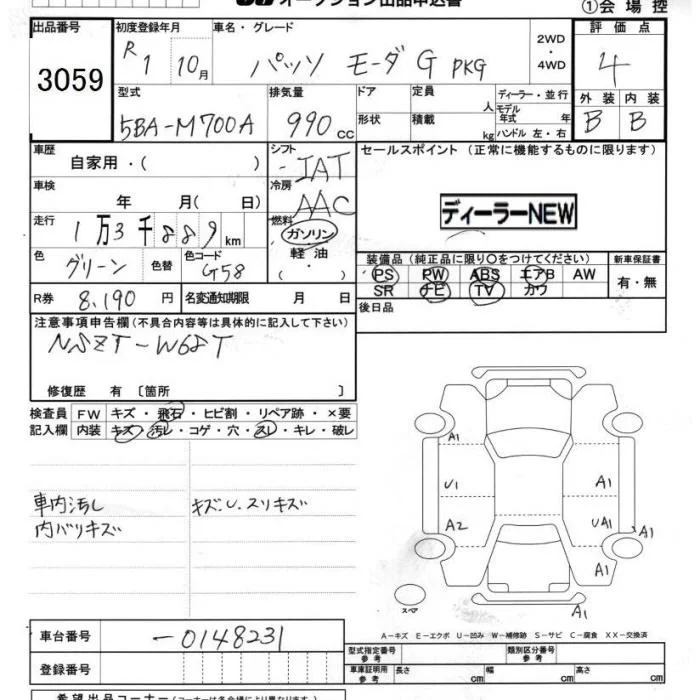 オークション出品申込書
①会場控
出品番号 初度登録年月 車名・グレード 評価点
3059 R 1 10月 パッソ モーダ G PKG 2WD・4WD 4
型式 排気量 ドア 定員 人 ディーラー・並行 外装 内装
5BA-M700A 990cc 形状 積載 kg モデル年式 年 ハンドル 左・右 B B
車歴 シフト セールスポイント(正常に機能するものに限ります)
自家用・( ) IAT
車検 冷房
年 月( 日) AAC ディーラーNEW
走行 1万3千889km 燃料 ガソリン
軽油
・( )
色 色替 色コード 装備品(純正品に限り○をつけてください) 新車保証書
グリーン G58 PS PW ABS エアB AW 有・無
SR ナビ TV カワ
R券 8,190円 名変通知期限 月 日 後日品
注意事項申告欄(不具合内容等は具体的に記入して下さい)
NSZT-W68T
修復歴 有 〔箇所 〕
検査員 FW キズ・飛石・ヒビ割・リペア跡・×要
記入欄 内装 キズ・汚レ・コゲ・穴・スレ・キレ・破レ
A1
U1 A1
A2 UA1 A1
A1
A1
車内汚し キズ.U.スリキズ
内バリキズ
スペア
A-キズ E-エクボ U-凹み W-補修跡 S-サビ C-腐食 XX-交換済
車台番号 -0148231
型式指定番号 参考 類別区分番号 参考
登録番号 車庫証明用 参考 長さ cm 幅 cm 高さ cm
希望出品コーナー(コーナーは各会場により異なります)